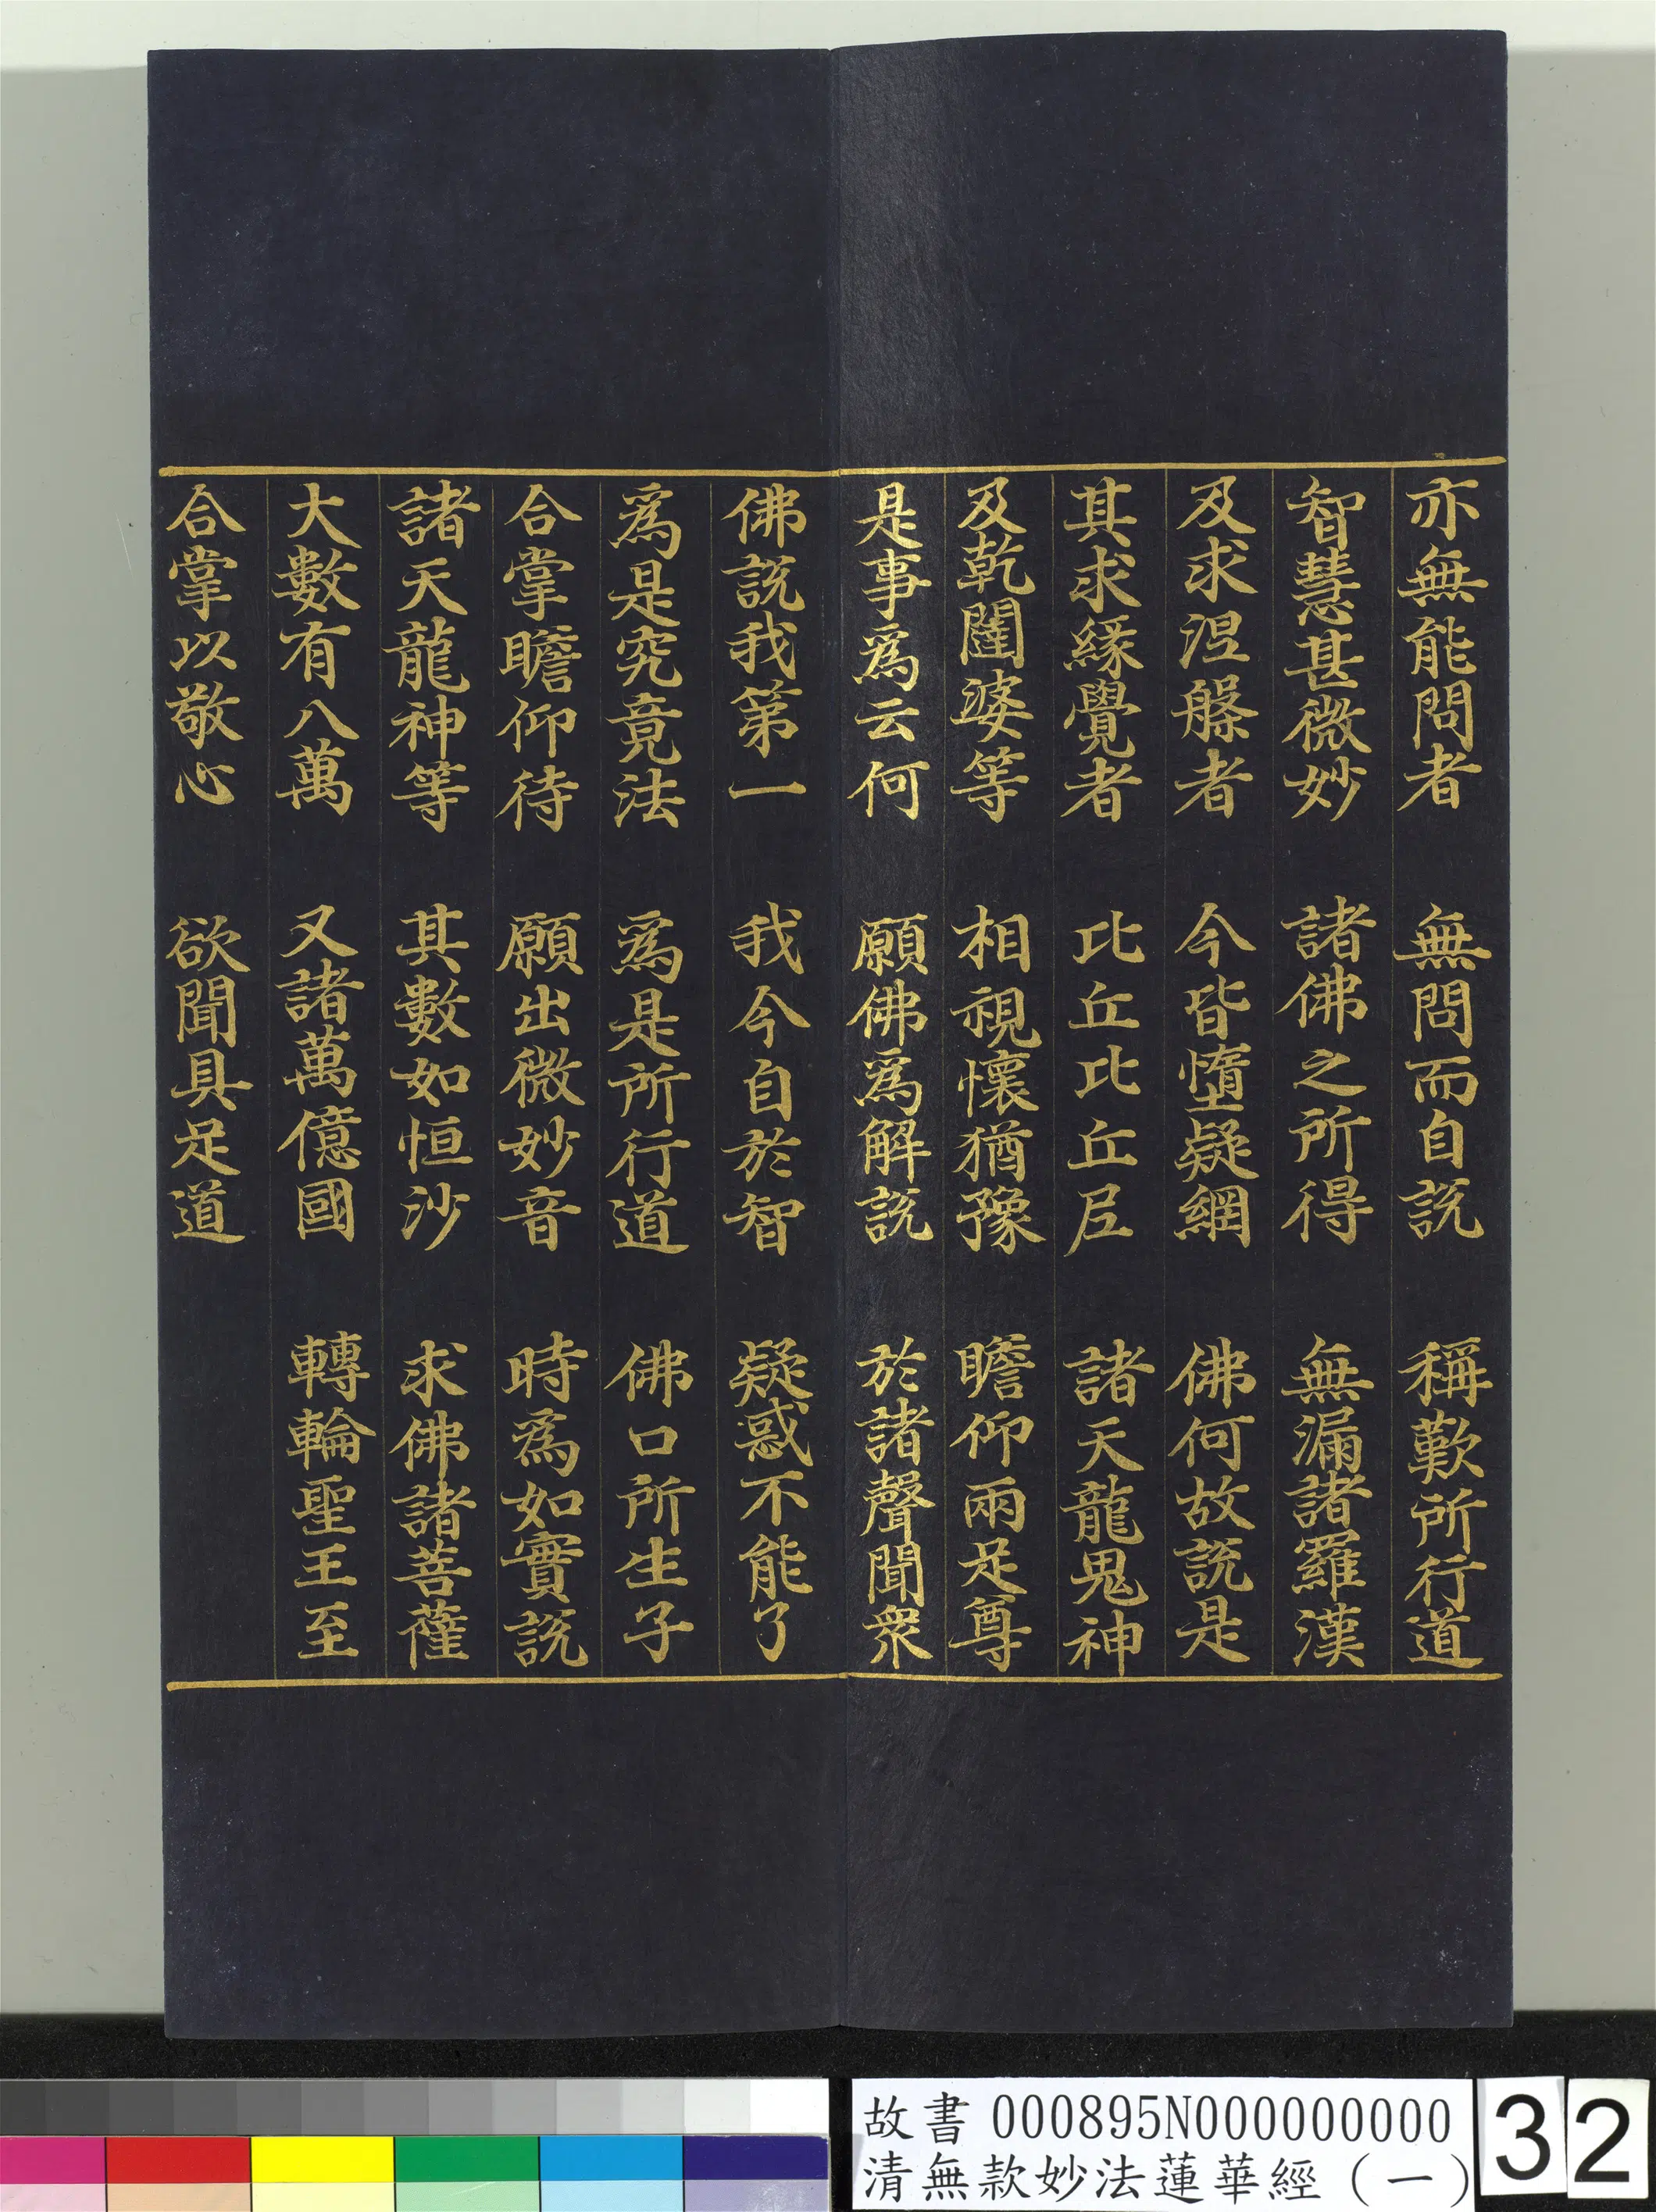 亦無能問者　無問而自説　稱歎所行道
智慧甚微妙　諸佛之所得　無漏諸羅漢
及求涅槃者　今皆墮疑網　佛何故説是
其求緣覺者　比丘比丘尼　諸天龍鬼神
及乾闥婆等　相視懷猶豫　瞻仰兩足尊
是事為云何　願佛為解説　於諸聲聞衆
佛説我第一　我今自於智　疑惑不能了
為是究竟法　為是所行道　佛口所生子
合掌瞻仰待　願出微妙音　時為如實説
諸天龍神等　其數如恒沙　求佛諸菩薩
大數有八萬　又諸萬億國　轉輪聖王至
合掌以敬心　欲聞具足道
故書 000895N000000000
清無款妙法蓮華經（一）
32